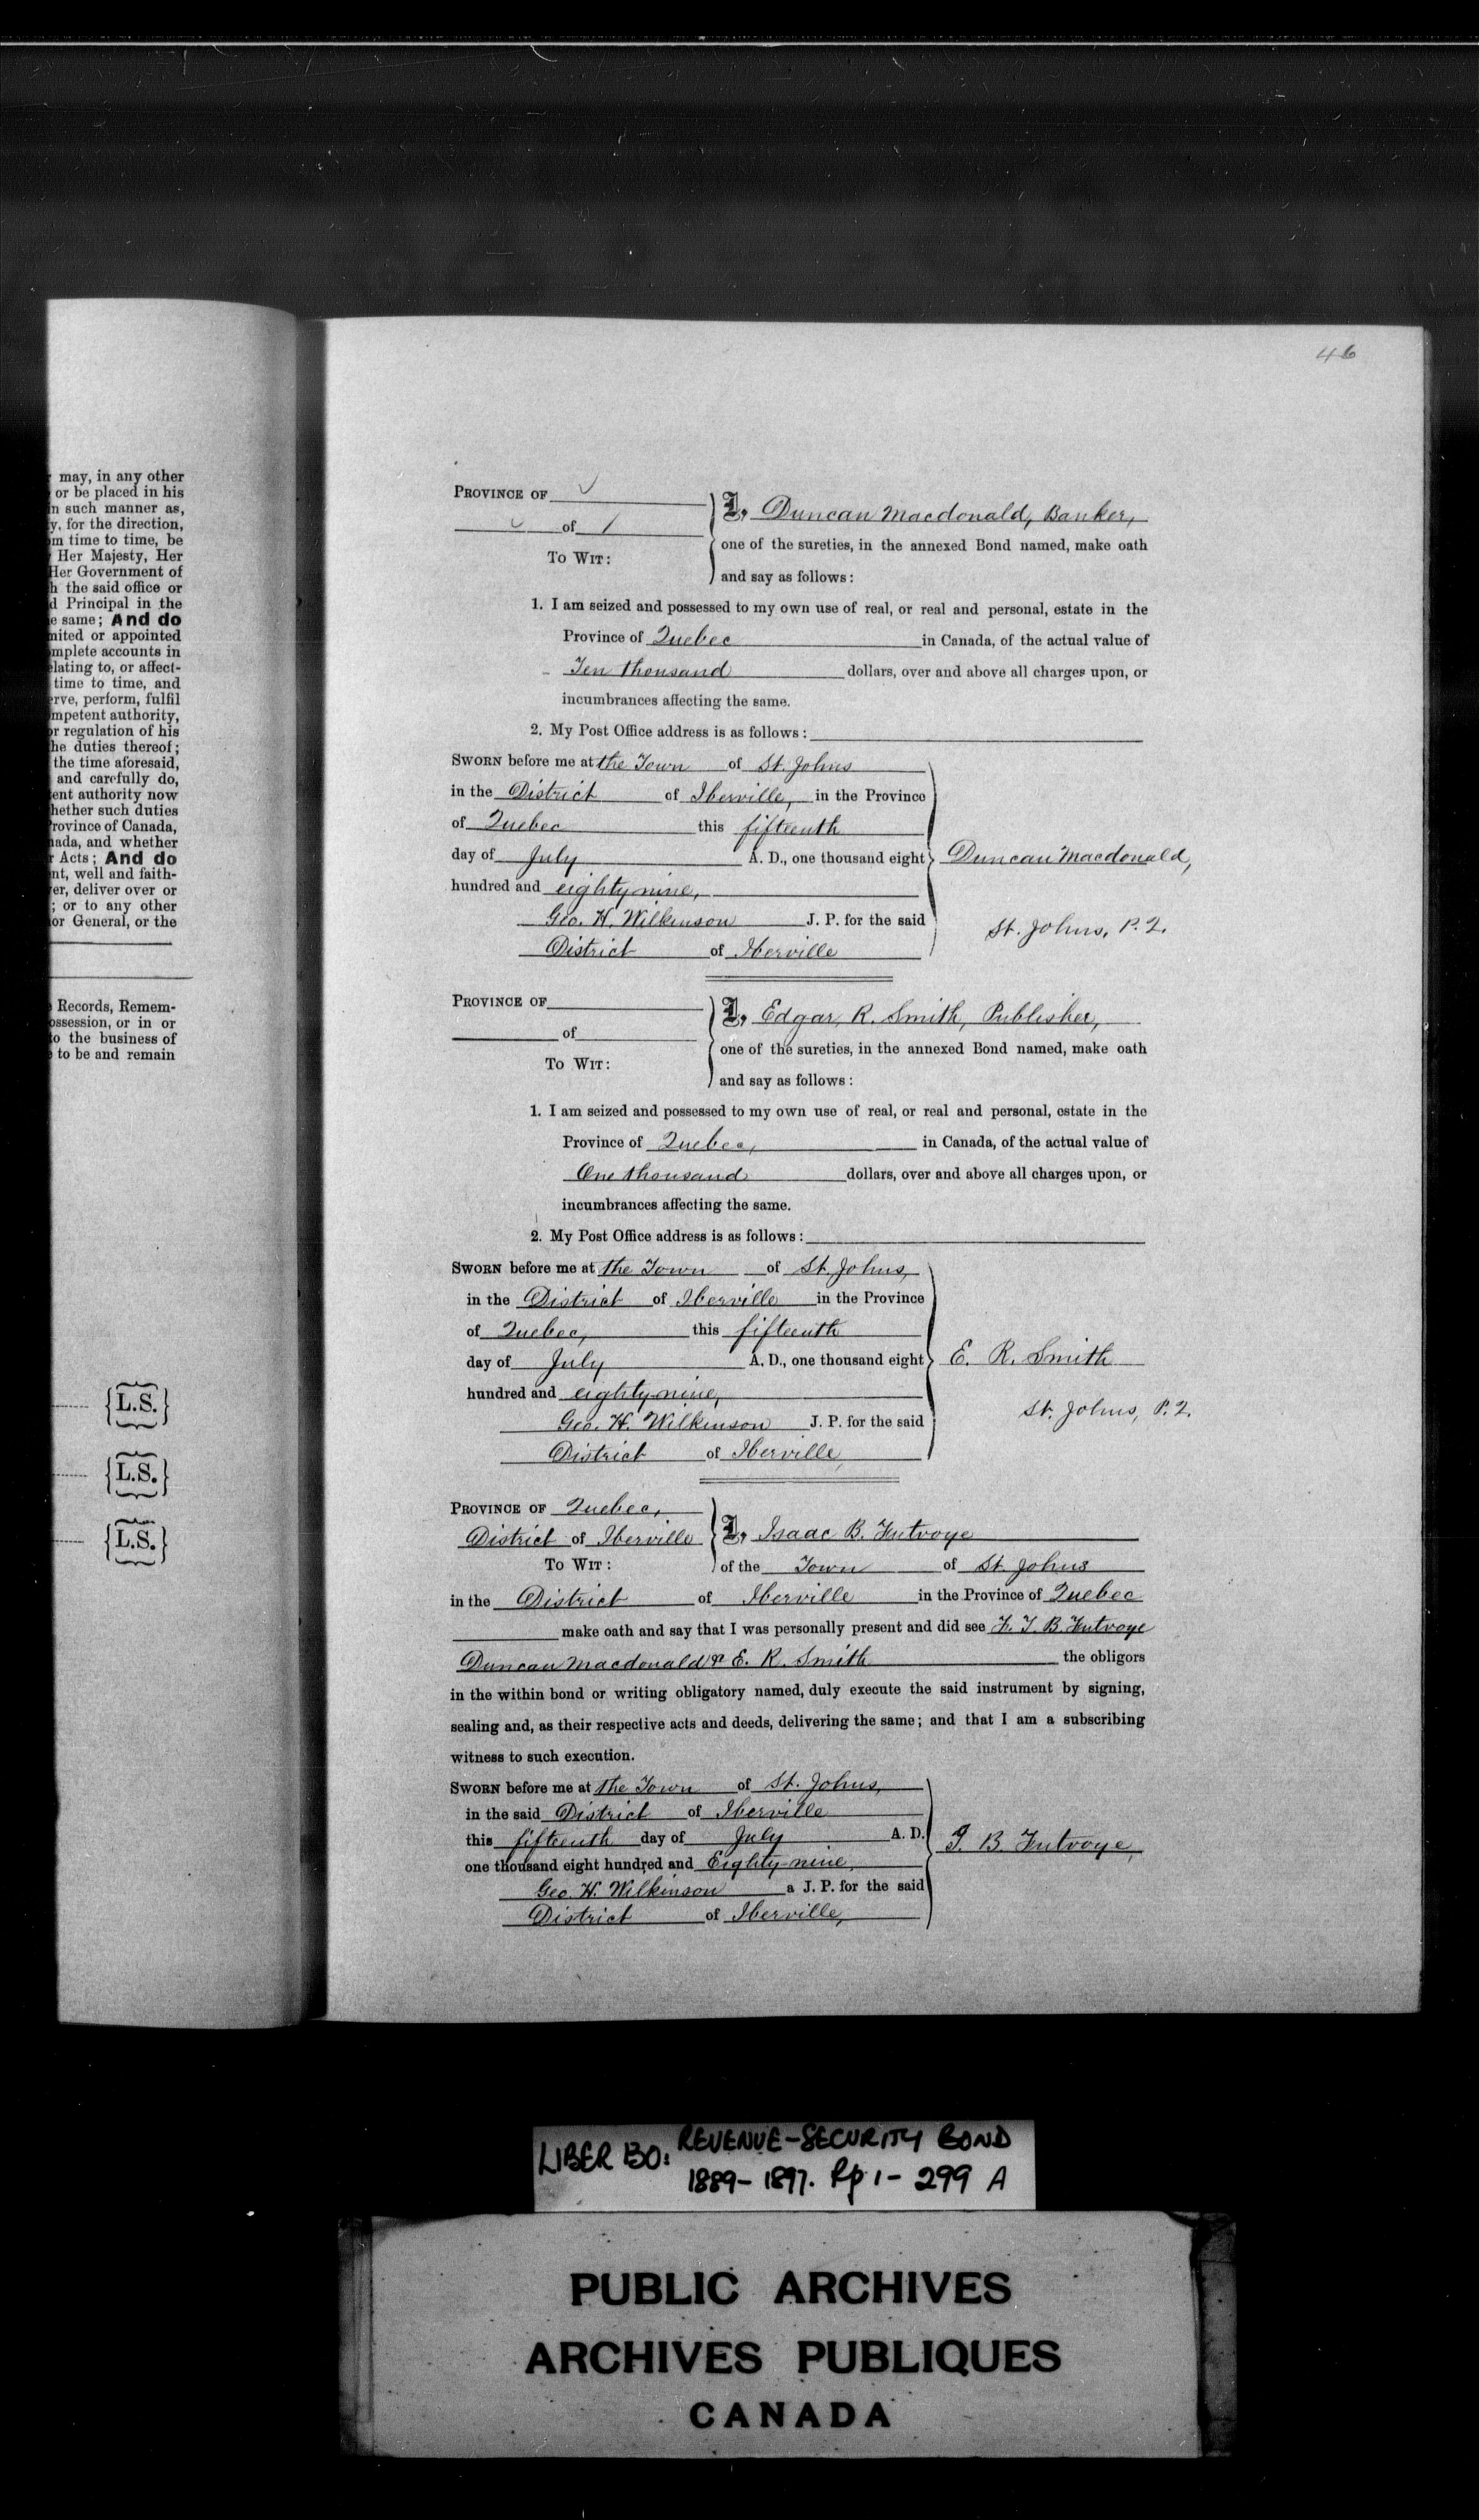 may, in any other
or be placed in his
in such manner as,
y, for the direction,
m time to time, be
Her Majesty, Her
Her Government of
h the said office or
d Principal in the
e same; And do
nited or appointed
mplete accounts in
lating to, or affect-
time to time, and
rve, perform, fulfil
mpetent authority,
or regulation of his
he duties thereof;
the time aforesaid,
and carefully do,
ent authority now
hether such duties
Province of Canada,
nada, and whether
r Acts; And do
nt, well and faith-
er, deliver over or
; or to any other
or General, or the
Records, Remem-
ossession, or in or
to the business of
to be and remain
{L.S.}
{L.S.}
{L.S.}
46
PROVINCE OF
of
TO WIT:
I, Duncan Macdonald, Banker,
one of the sureties, in the annexed Bond named, make oath
and say as follows:
1. I am seized and possessed to my own use of real, or real and personal, estate in the
Province of Quebec in Canada, of the actual value of
Ten thousand dollars, over and above all charges upon, or
incumbrances affecting the same.
2. My Post Office address is as follows:
SWORN before me at the Town of St. Johns
in the District of Iberville, in the Province
of Quebec this fifteenth
day of July A. D., one thousand eight
hundred and eighty nine,
Geo. H. Wilkinson J. P. for the said
District of Iberville
Duncan Macdonald,
St. Johns, P. Q.
PROVINCE OF
of
TO WIT:
I, Edgar R. Smith, Publisher,
one of the sureties, in the annexed Bond named, make oath
and say as follows:
1. I am seized and possessed to my own use of real, or real and personal, estate in the
Province of Quebec, in Canada, of the actual value of
One thousand dollars, over and above all charges upon, or
incumbrances affecting the same.
2. My Post Office address is as follows:
SWORN before me at the Town of St. Johns,
in the District of Iberville in the Province
of Quebec, this fifteenth
day of July A. D., one thousand eight
hundred and eighty nine,
Geo. H. Wilkinson J. P. for the said
District of Iberville,
E. R. Smith
St. Johns, P. Q.
PROVINCE OF Quebec,
District of Iberville
TO WIT:
I, Isaac B. Futvoye
of the Town of St. Johns
in the District of Iberville in the Province of Quebec
make oath and say that I was personally present and did see F. I. B. Futvoye
Duncan Macdonald & E. R. Smith the obligors
in the within bond or writing obligatory named, duly execute the said instrument by signing,
sealing and, as their respective acts and deeds, delivering the same; and that I am a subscribing
witness to such execution.
SWORN before me at the Town of St. Johns,
in the said District of Iberville
this fifteenth day of July A. D.
one thousand eight hundred and Eighty nine,
Geo. H. Wilkinson a J. P. for the said
District of Iberville,
I. B. Futvoye,
LIBER 130: REVENUE-SECURITY BOND
1889-1897. Pp 1-299 A
PUBLIC ARCHIVES
ARCHIVES PUBLIQUES
CANADA